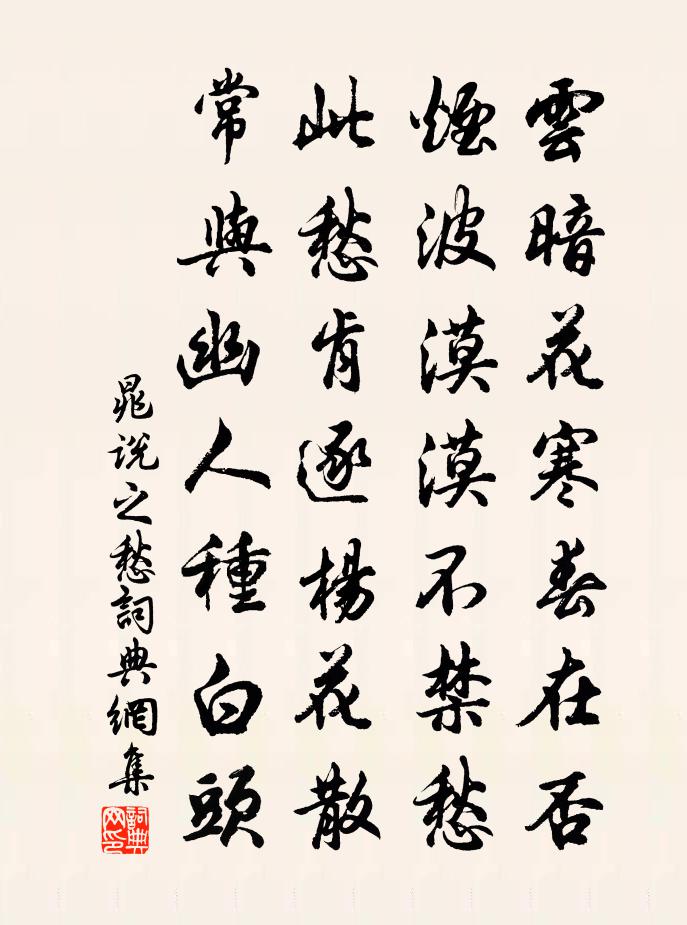 雲暗花寒春在否
煙波漠漠不禁愁
此愁肯逐楊花散
常與幽人種白頭
晁說之愁詞典網集
詞典网印